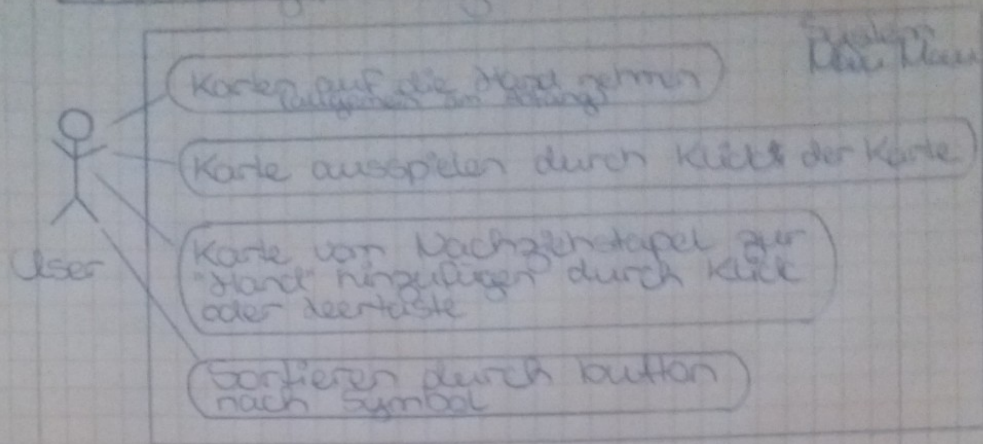 Mau Mau
Karten auf die Hand nehmen
am Anfang
Karte ausspielen durch Klick der Karte
User
Karte vom Nachziehstapel zur
"Hand" hinzufügen durch Klick
oder Leertaste
Sortieren durch button
nach Symbol